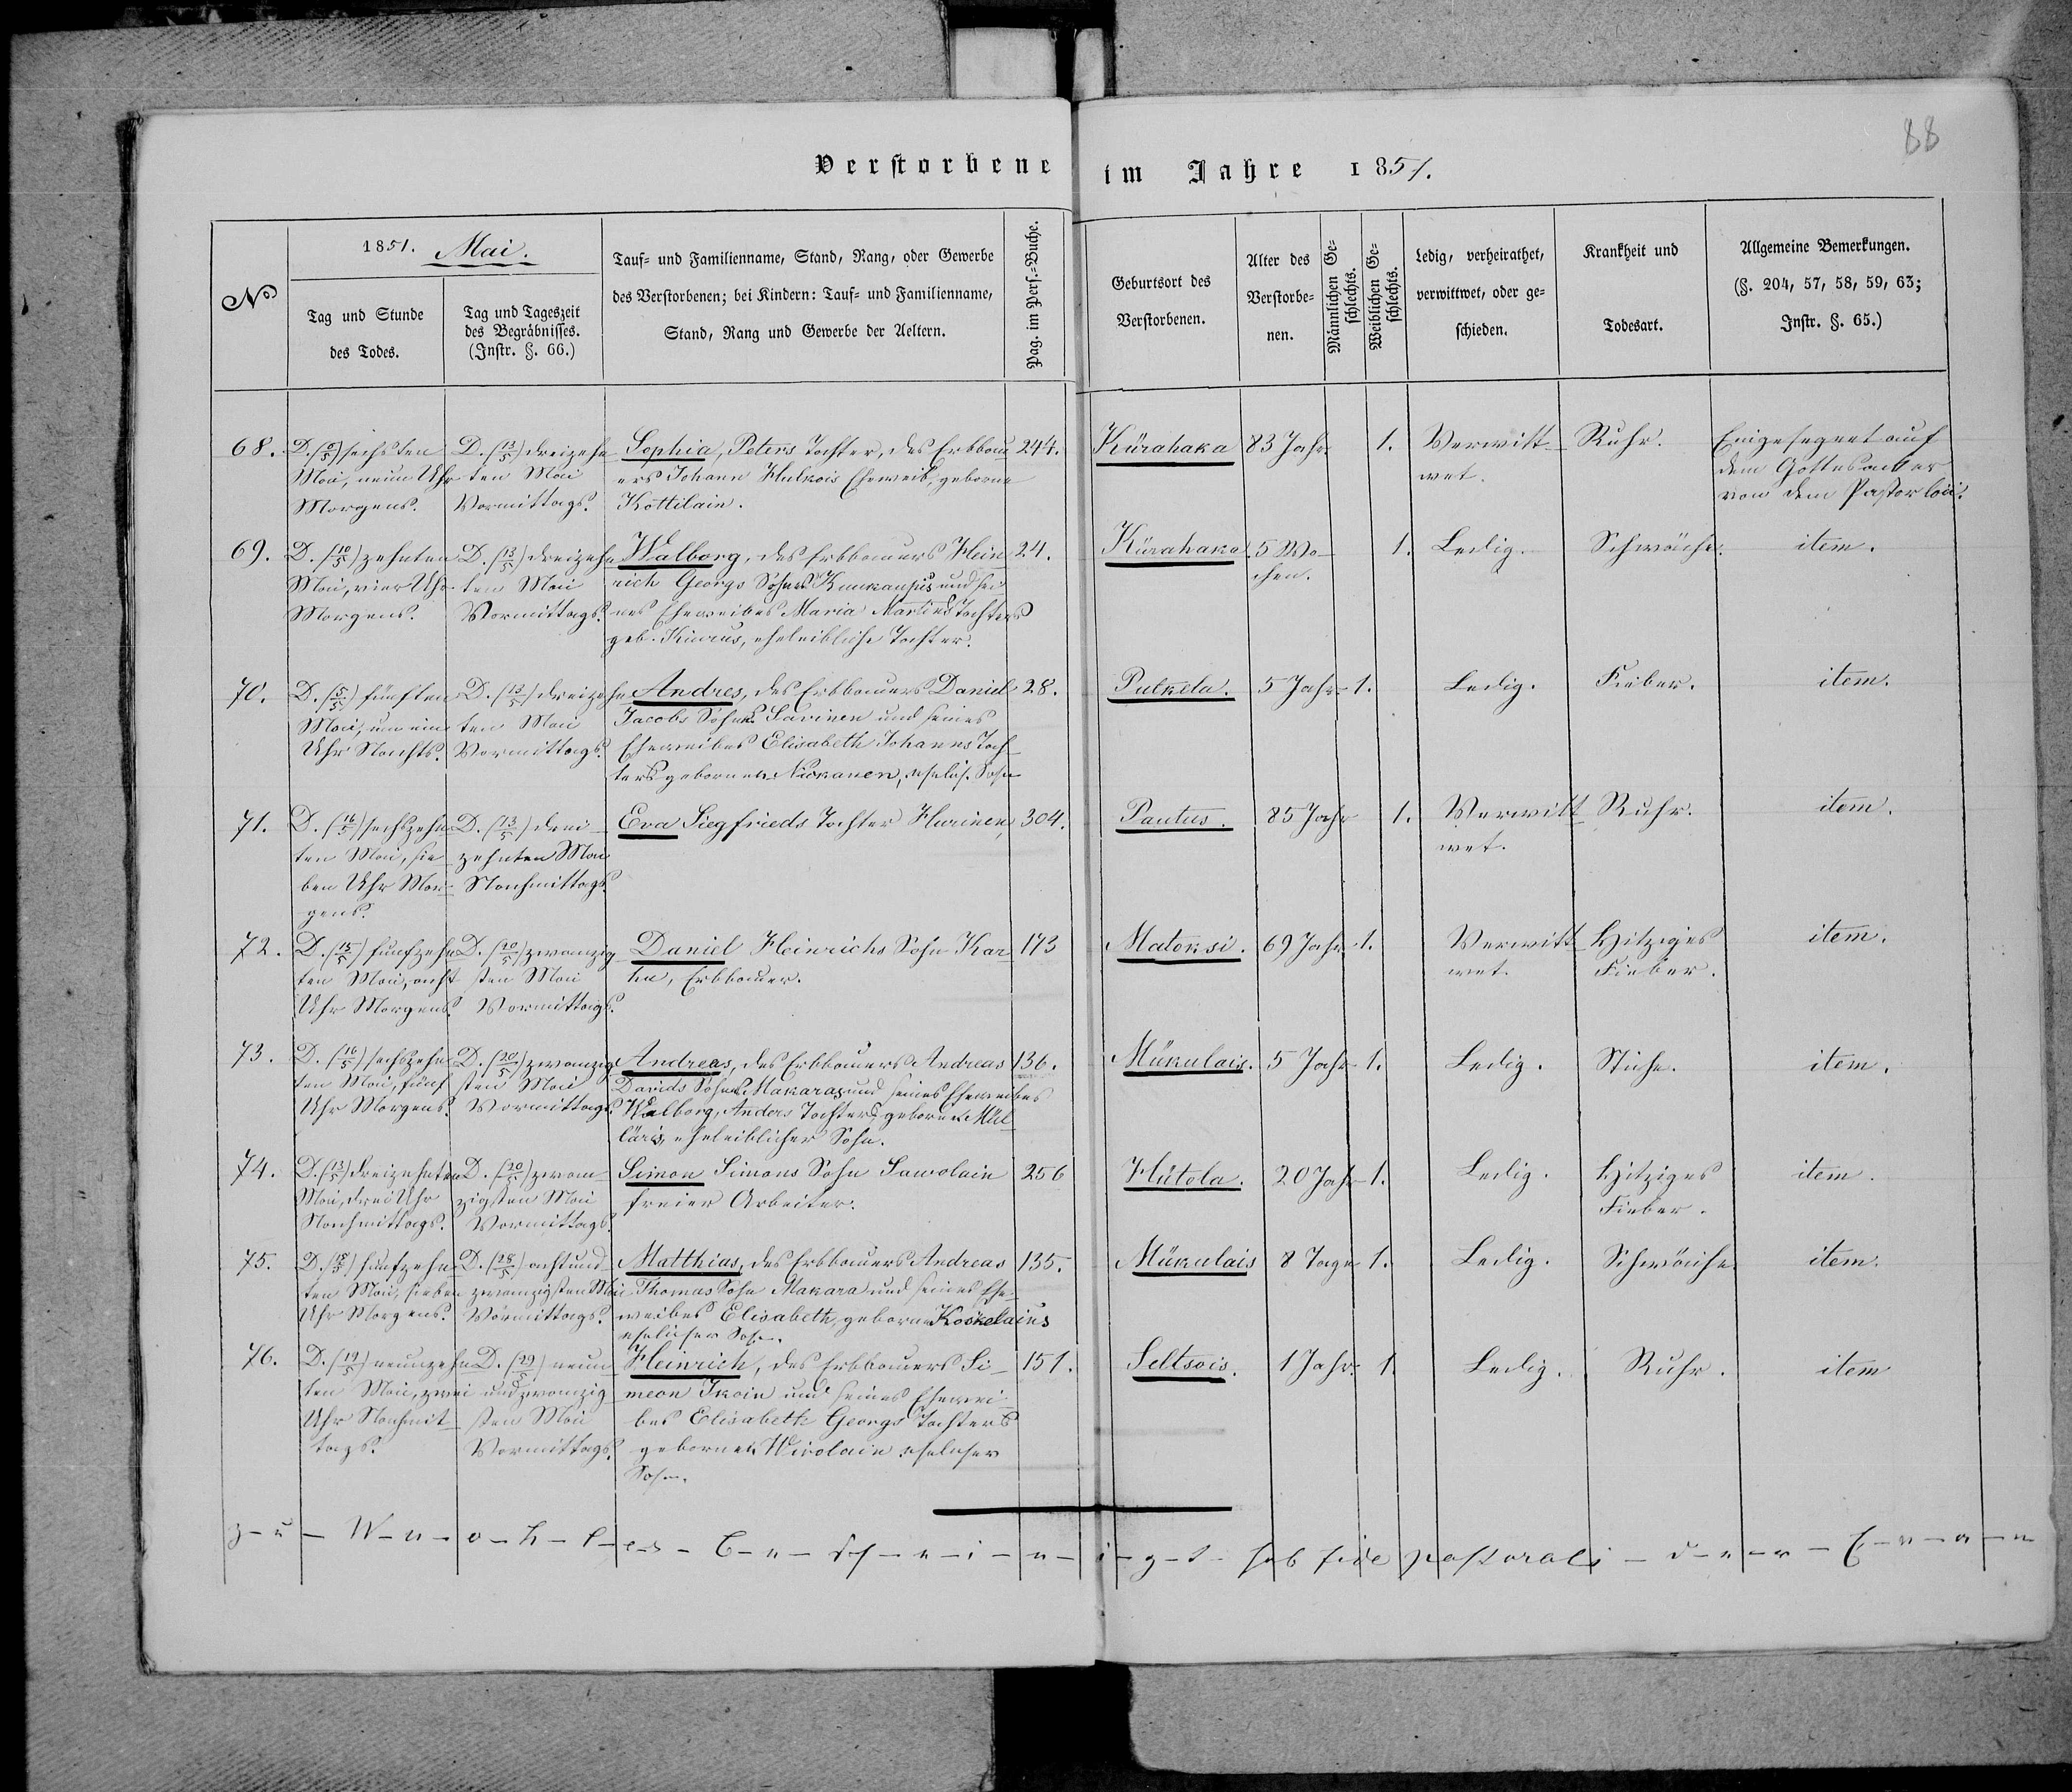 88
Verstorbene im Jahre 1851.
No
1851. Mai.
Tag und Stunde
des Todes.
Tag und Tageszeit
des Begräbnisses.
(Instr. §. 66.)
Tauf- und Familienname, Stand, Rang, oder Gewerbe
des Verstorbenen; bei Kindern: Tauf- und Familienname,
Stand, Rang und Gewerbe der Aeltern.
Pag. im Pers.-Buche.
Geburtsort des
Verstorbenen.
Alter des
Verstorbe-
nen.
Männlichen Ge-
schlechts.
Weiblichen Ge-
schlechts.
Ledig, verheirathet,
verwittwet, oder ge-
schieden.
Krankheit und
Todesart.
Allgemeine Bemerkungen.
(§. 204, 57, 58, 59, 63;
Instr. §. 65.)
68.
D. (6/5) sechsten
Mai, neun Uhr
Morgens.
D. (13/5) dreizehn
ten Mai
Vormittags.
Sophia, Peters Tochter, des Erbbau
ers Johann Hulkois Eheweib, geborne
Kottilain.
244.
Kürahaka
83 Jahr
1.
Verwitt-
wet.
Ruhr.
Eingesegnet auf
dem Gottesacker
von dem Pastor loci.
69.
D. (10/5) zehnten
Mai, vier Uhr
Morgens.
D. (13/5) dreizehn
ten Mai
Vormittags.
Walborg, des Erbbauers Hein
rich Georgs Sohnes und sei
nes Eheweibes Maria Martins Tochters
geb. Kiurus, eheleibliche Tochter.
24.
Kürahaka
5 Wo-
chen.
1.
Ledig.
Schwäche.
item.
70.
D. (5/5) fünften
Mai, um ein
Uhr Nachts.
D. (13/5) dreizehn
ten Mai
Vormittags.
Andres, des Erbbauers Daniel
Jacobs Sohnes Savinen und seines
Eheweibes Elisabeth Johanns Toch
ters gebornen Nickanen, ehelich. Sohn
28.
Putkela.
5 Jahr
1.
Ledig.
Fieber.
item.
71.
D. (16/5) sechszehn
ten Mai, sie
ben Uhr Mor-
gens.
D. (13/5) drei-
zehnten Mai
Nachmittags.
Eva Siegfrieds Tochter Hurinen,
304.
Pautus.
85 Jahr
1.
Verwitt
wet.
Ruhr.
item.
72.
D. (15/5) funfzehn
ten Mai, acht
Uhr Morgens.
D. (20/5) zwanzig
sten Mai
Vormittags.
Daniel Heinrichs Sohn Kar-
hu, Erbbauer.
173
Matoksi.
69 Jahr
1.
Verwitt
wet.
Hitziges
Fieber.
item.
73.
D. (16/5) sechszehn
ten Mai, fünf
Uhr Morgens.
D. (20/5) zwanzig
sten Mai
Vormittags.
Andreas, des Erbbauers Andreas
Davids Sohnes Makaras und seines Eheweibes
Walborg, Anders Tochters gebornen Mül
läris eheleiblicher Sohn.
136.
Mükulais.
5 Jahr
1.
Ledig.
Stiche.
item.
74.
D. (13/5) dreizehnten
Mai, drei Uhr
Nachmittags.
D. (20/5) zwan-
zigsten Mai
Vormittags.
Simon Simons Sohn Sawolain
freier Arbeiter.
256
Hütola.
20 Jahr
1.
Ledig.
Hitziges
Fieber.
item.
75.
D. (15/5) funfzehn
ten Mai, sieben
Uhr Morgens.
D. (28/5) achtund
zwanzigsten Mai
Vormittags.
Matthias, des Erbbauers Andreas
Thomas Sohn Makara und seines Ehe-
weibes Elisabeth, geborne Koskelains
ehelicher Sohn.
135.
Mükulais
8 Tage
1.
Ledig.
Schwäche
item.
76.
D. (19/5) neunzehn
ten Mai, zwei
Uhr Nachmit
tags.
D. (29/5) neun
und zwanzig
sten Mai
Vormittags.
Heinrich, des Erbbauers Si-
meon Ikoin und seines Ehewei-
bes Elisabeth Georgs Tochters
gebornen Wirolain ehelicher
Sohn.
151.
Seltsois.
1 Jahr.
1.
Ledig.
Ruhr.
item
sub fide pastorali